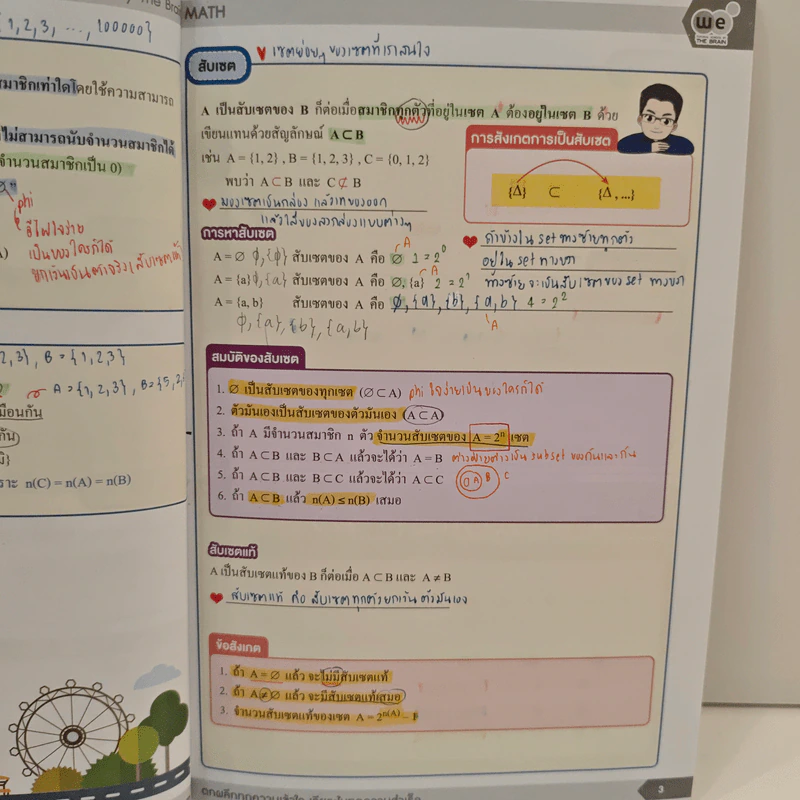 The Brain
{1, 2, 3, ..., 100000}
สมาชิกเท่าใดโดยใช้ความสามารถ
ไม่สามารถนับจำนวนสมาชิกได้
จำนวนสมาชิกเป็น 0)
phi
ขี้ใจง่าย
เป็นของใครก็ได้
2, 3}, B = {1,2,3}
A = {1,2,3}, B = {5,2,
เหมือนกัน
กัน)
ราะ n(C) = n(A) = n(B)
MATH
we
THE BRAIN
สับเซต
เซตย่อยๆ ของเซตที่เราสนใจ
A เป็นสับเซตของ B ก็ต่อเมื่อสมาชิกทุกตัวที่อยู่ในเซต A ต้องอยู่ในเซต B ด้วย
เขียนแทนด้วยสัญลักษณ์ A ⊂ B
เช่น A = {1, 2} , B = {1, 2, 3} , C = {0, 1, 2}
พบว่า A ⊂ B และ C ⊄ B
การสังเกตการเป็นสับเซต
{Δ} ⊂ {Δ, ...}
มองเซตเป็นกล่อง แล้วเทของออก
แล้วใส่ของลงกล่องแบบต่างๆ
การหาสับเซต
A = ∅ ϕ, {ϕ} สับเซตของ A คือ ∅ 1 = 2⁰
A = {a} ϕ, {a} สับเซตของ A คือ ∅, {a} 2 = 2¹
A = {a, b} สับเซตของ A คือ ϕ, {a}, {b}, {a, b} 4 = 2²
ϕ, {a}, {b}, {a, b}
A
A
A
ถ้าข้างใน set ทางซ้ายทุกตัว
อยู่ใน set ทางขวา
ทางซ้ายจะเป็นสับเซตของ set ทางขวา
สมบัติของสับเซต
1. ∅ เป็นสับเซตของทุกเซต (∅ ⊂ A) phi ใจง่ายเป็นของใครก็ได้
2. ตัวมันเองเป็นสับเซตของตัวมันเอง (A ⊂ A)
3. ถ้า A มีจำนวนสมาชิก n ตัว จำนวนสับเซตของ A = 2ⁿ เซต
4. ถ้า A ⊂ B และ B ⊂ A แล้วจะได้ว่า A = B ต่างฝ่ายต่างเป็น subset ของกันและกัน
5. ถ้า A ⊂ B และ B ⊂ C แล้วจะได้ว่า A ⊂ C A B C
6. ถ้า A ⊂ B แล้ว n(A) ≤ n(B) เสมอ
สับเซตแท้
A เป็นสับเซตแท้ของ B ก็ต่อเมื่อ A ⊂ B และ A ≠ B
สับเซตแท้ คือ สับเซตทุกตัวยกเว้น ตัวมันเอง
ข้อสังเกต
1. ถ้า A = ∅ แล้ว จะไม่มีสับเซตแท้
2. ถ้า A ≠ ∅ แล้ว จะมีสับเซตแท้เสมอ
3. จำนวนสับเซตแท้ของเซต A = 2ⁿ⁽ᴬ⁾ – 1
3